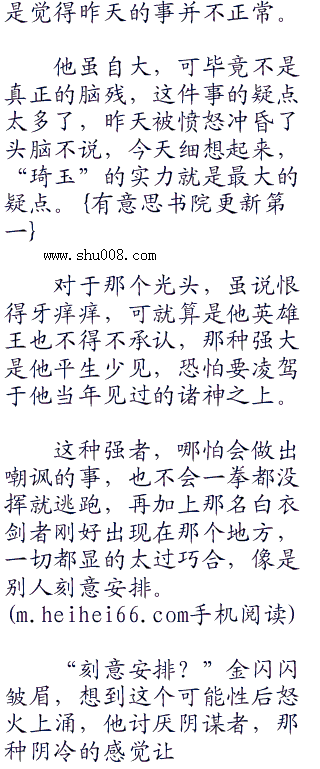 是觉得昨天的事并不正常。
他虽自大，可毕竟不是
真正的脑残，这件事的疑点
太多了，昨天被愤怒冲昏了
头脑不说，今天细想起来，
“琦玉”的实力就是最大的
疑点。{有意思书院更新第
一}
www.shu008.com
对于那个光头，虽说恨
得牙痒痒，可就算是他英雄
王也不得不承认，那种强大
是他平生少见，恐怕要凌驾
于他当年见过的诸神之上。
这种强者，哪怕会做出
嘲讽的事，也不会一拳都没
挥就逃跑，再加上那名白衣
剑者刚好出现在那个地方，
一切都显的太过巧合，像是
别人刻意安排。
(m.heihei66.com手机阅读)
“刻意安排？”金闪闪
皱眉，想到这个可能性后怒
火上涌，他讨厌阴谋者，那
种阴冷的感觉让